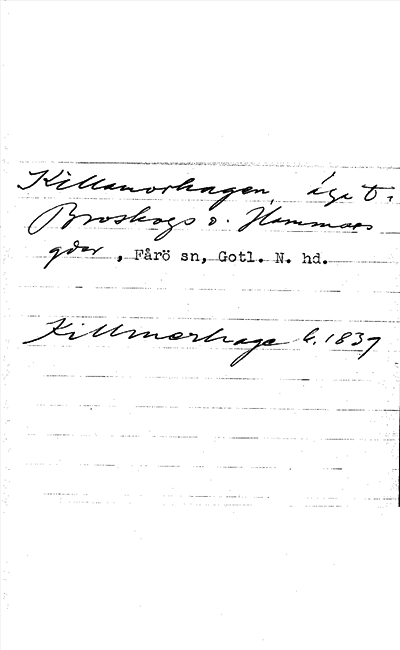 Killanorhagen, äga t.
Broskogs o. Hammars
gdar, Fårö sn, Gotl. N. hd.
Killmorhage k. 1837